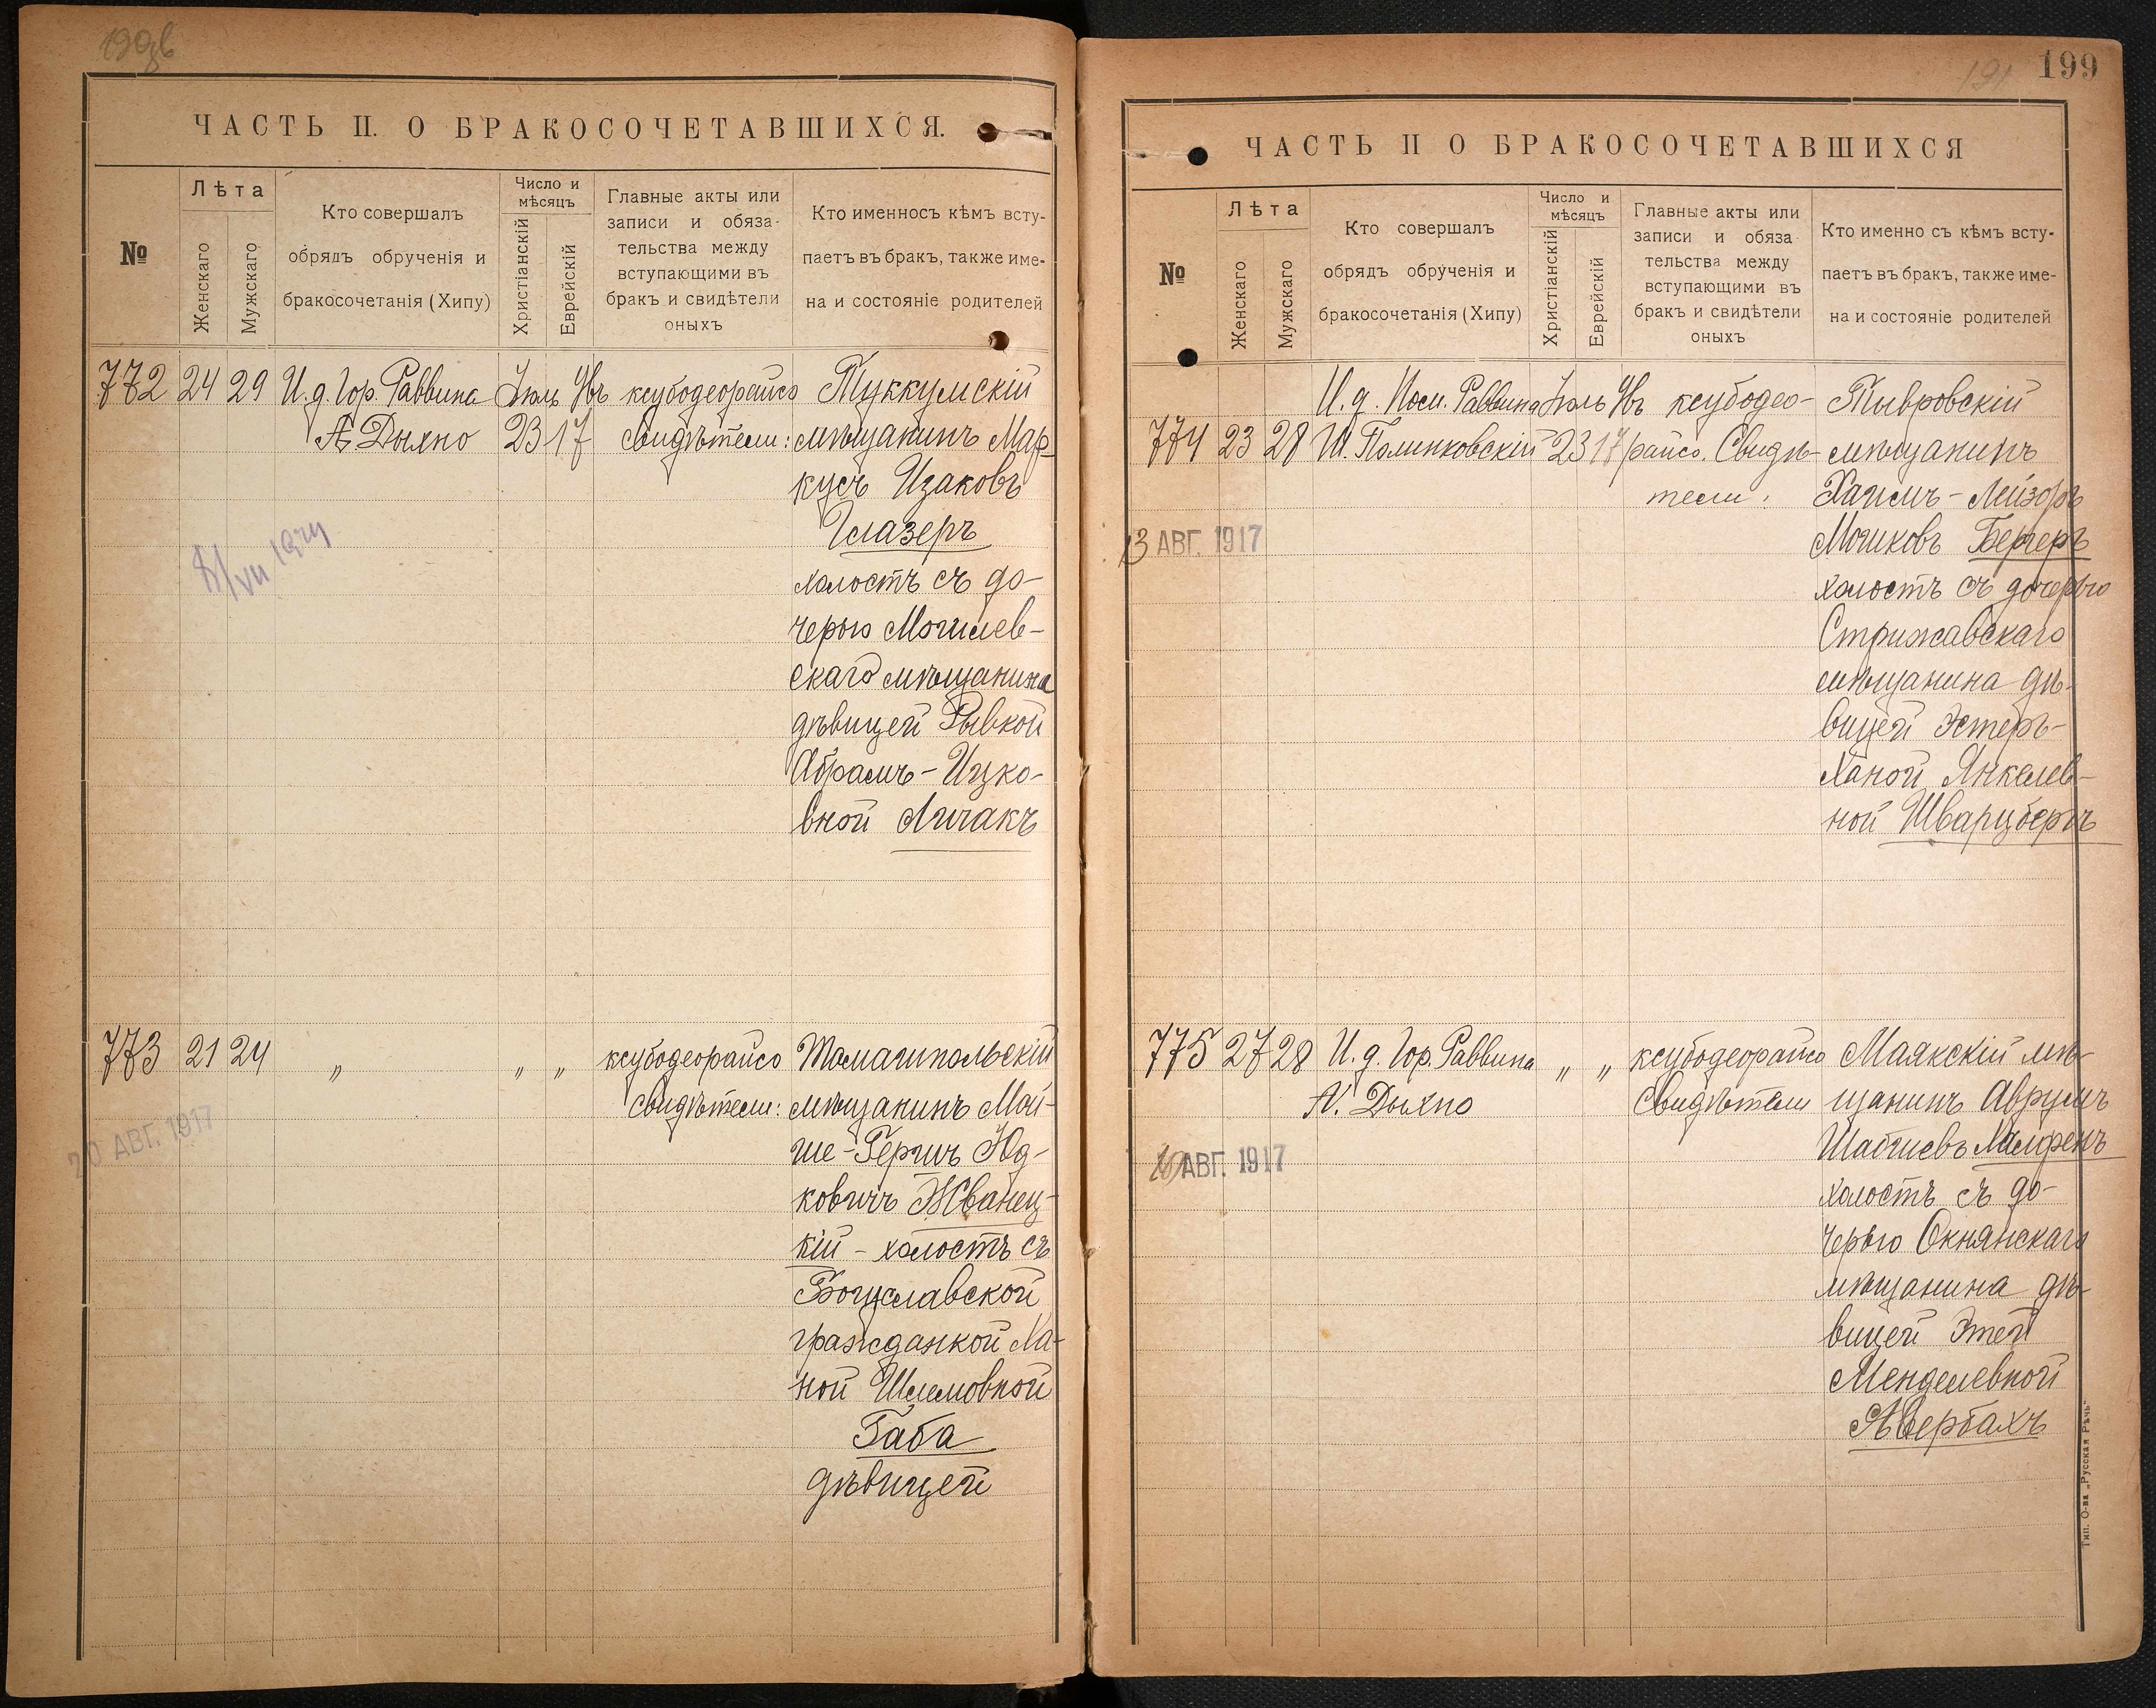 199
ЧАСТЬ II. О БРАКОСОЧЕТАВШИХСЯ.
№
Лѣта
Женскаго
Мужскаго
Кто совершалъ
обрядъ обрученія и
бракосочетанія (Хипу)
Число и
мѣсяцъ
Христіанскій
Еврейскій
Главные акты или
записи и обяза-
тельства между
вступающими въ
бракъ и свидѣтели
оныхъ
Кто именносъ кѣмъ всту-
паетъ въ бракъ, также име-
на и состояніе родителей
772 24 29 И. д. Гор. Раввина Іюль Увъ ксубодеорайсо Туккумскій
А. Дыхно 23 17 свидѣтели: мѣщанинъ Мар-
кусъ Изаковъ
Глазеръ
холостъ съ до-
черью Могилев-
скаго мѣщанина
дѣвицей Рывкой
Абрамъ-Ицко-
вной Личакъ
773 21 24 „ „ „ ксубодеорайсо Томашпольскій
свидѣтели: мѣщанинъ Мой-
ше-Гершъ Юд-
ковичъ Жванец-
кій - холостъ съ
Богуславской
гражданкой Ха-
ной Шлемовной
Габа
дѣвицей
20 АВГ. 1917
ЧАСТЬ II О БРАКОСОЧЕТАВШИХСЯ
№
Лѣта
Женскаго
Мужскаго
Кто совершалъ
обрядъ обрученія и
бракосочетанія (Хипу)
Число и
мѣсяцъ
Христіанскій
Еврейскій
Главные акты или
записи и обяза
тельства между
вступающими въ
бракъ и свидѣтели
оныхъ
Кто именно съ кѣмъ всту-
паетъ въ бракъ, также име-
на и состояніе родителей
И. д. Пом. Раввина Іюль Увъ ксубодео- Тывровскій
774 23 28 Ш. Полинковскій 23 17 райсо. Свидѣ- мѣщанинъ
тели: Хаимъ-Лейзоръ
13 АВГ. 1917
Мошковъ Бергеръ
холостъ съ дочерью
Стрижавскаго
мѣщанина дѣ-
вицей Эстеръ-
Ханой Янкелев-
ной Шварцбергъ
775 27 28 И. д. Гор. Раввина „ „ ксубодеорайсо Маякскій мѣ-
А. Дыхно Свидѣтели щанинъ Аврумъ
АВГ. 1917
Шабшевъ
холостъ съ до-
черью Окнянскаго
мѣщанина дѣ-
вицей Этей
Менделевной
Авербахъ
Тип. О-ва „Русская Рѣчь"